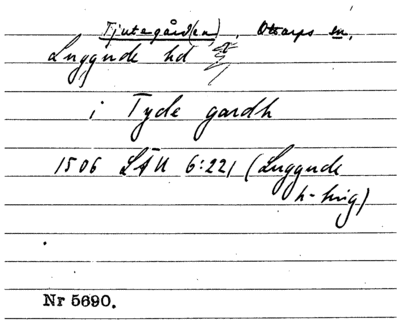 Tjutagård(en), Ottarps sn,
Luggude hd
i Tyde gardh
1506 LÄU 6:221 (Luggude
h-ting)
Nr 5690.